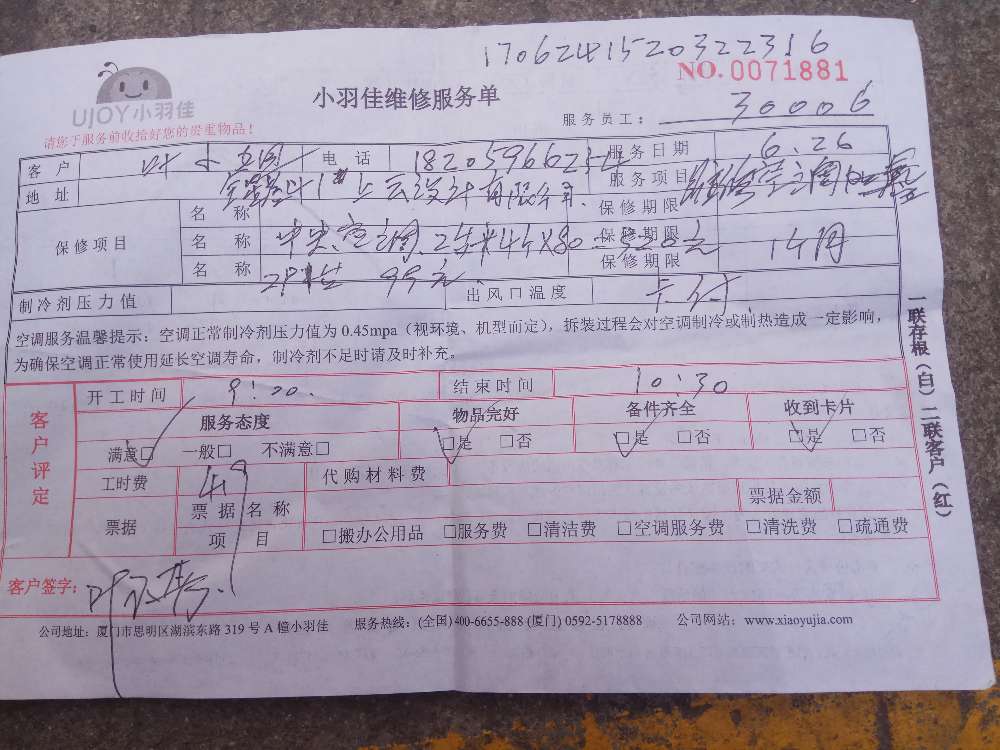 1706241520322316
NO.0071881
UJOY小羽佳
小羽佳维修服务单
请您于服务前收拾好您的贵重物品！
服务员工： 30006
客户 叶 电话 服务日期 6.26
地址 有限公司 服务项目
保修项目 名称 保修期限
名称 中央空调 保修期限 1个月
名称 99元 保修期限
制冷剂压力值 出风口温度 卡付
空调服务温馨提示：空调正常制冷剂压力值为 0.45mpa（视环境、机型而定），拆装过程会对空调制冷或制热造成一定影响，
为确保空调正常使用延长空调寿命，制冷剂不足时请及时补充。
客户评定 开工时间 9:00. 结束时间 10:30
服务态度 物品完好 备件齐全 收到卡片
满意□ 一般□ 不满意□ □是 □否 □是 □否 □是 □否
工时费 419 代购材料费
票据 票据名称 票据金额
项目 □搬办公用品 □服务费 □清洁费 □空调服务费 □清洗费 □疏通费
客户签字：
公司地址：厦门市思明区湖滨东路 319 号 A 幢小羽佳 服务热线：(全国)400-6655-888 (厦门) 0592-5178888 公司网站：www.xiaoyujia.com
一联存根（白）二联客户（红）